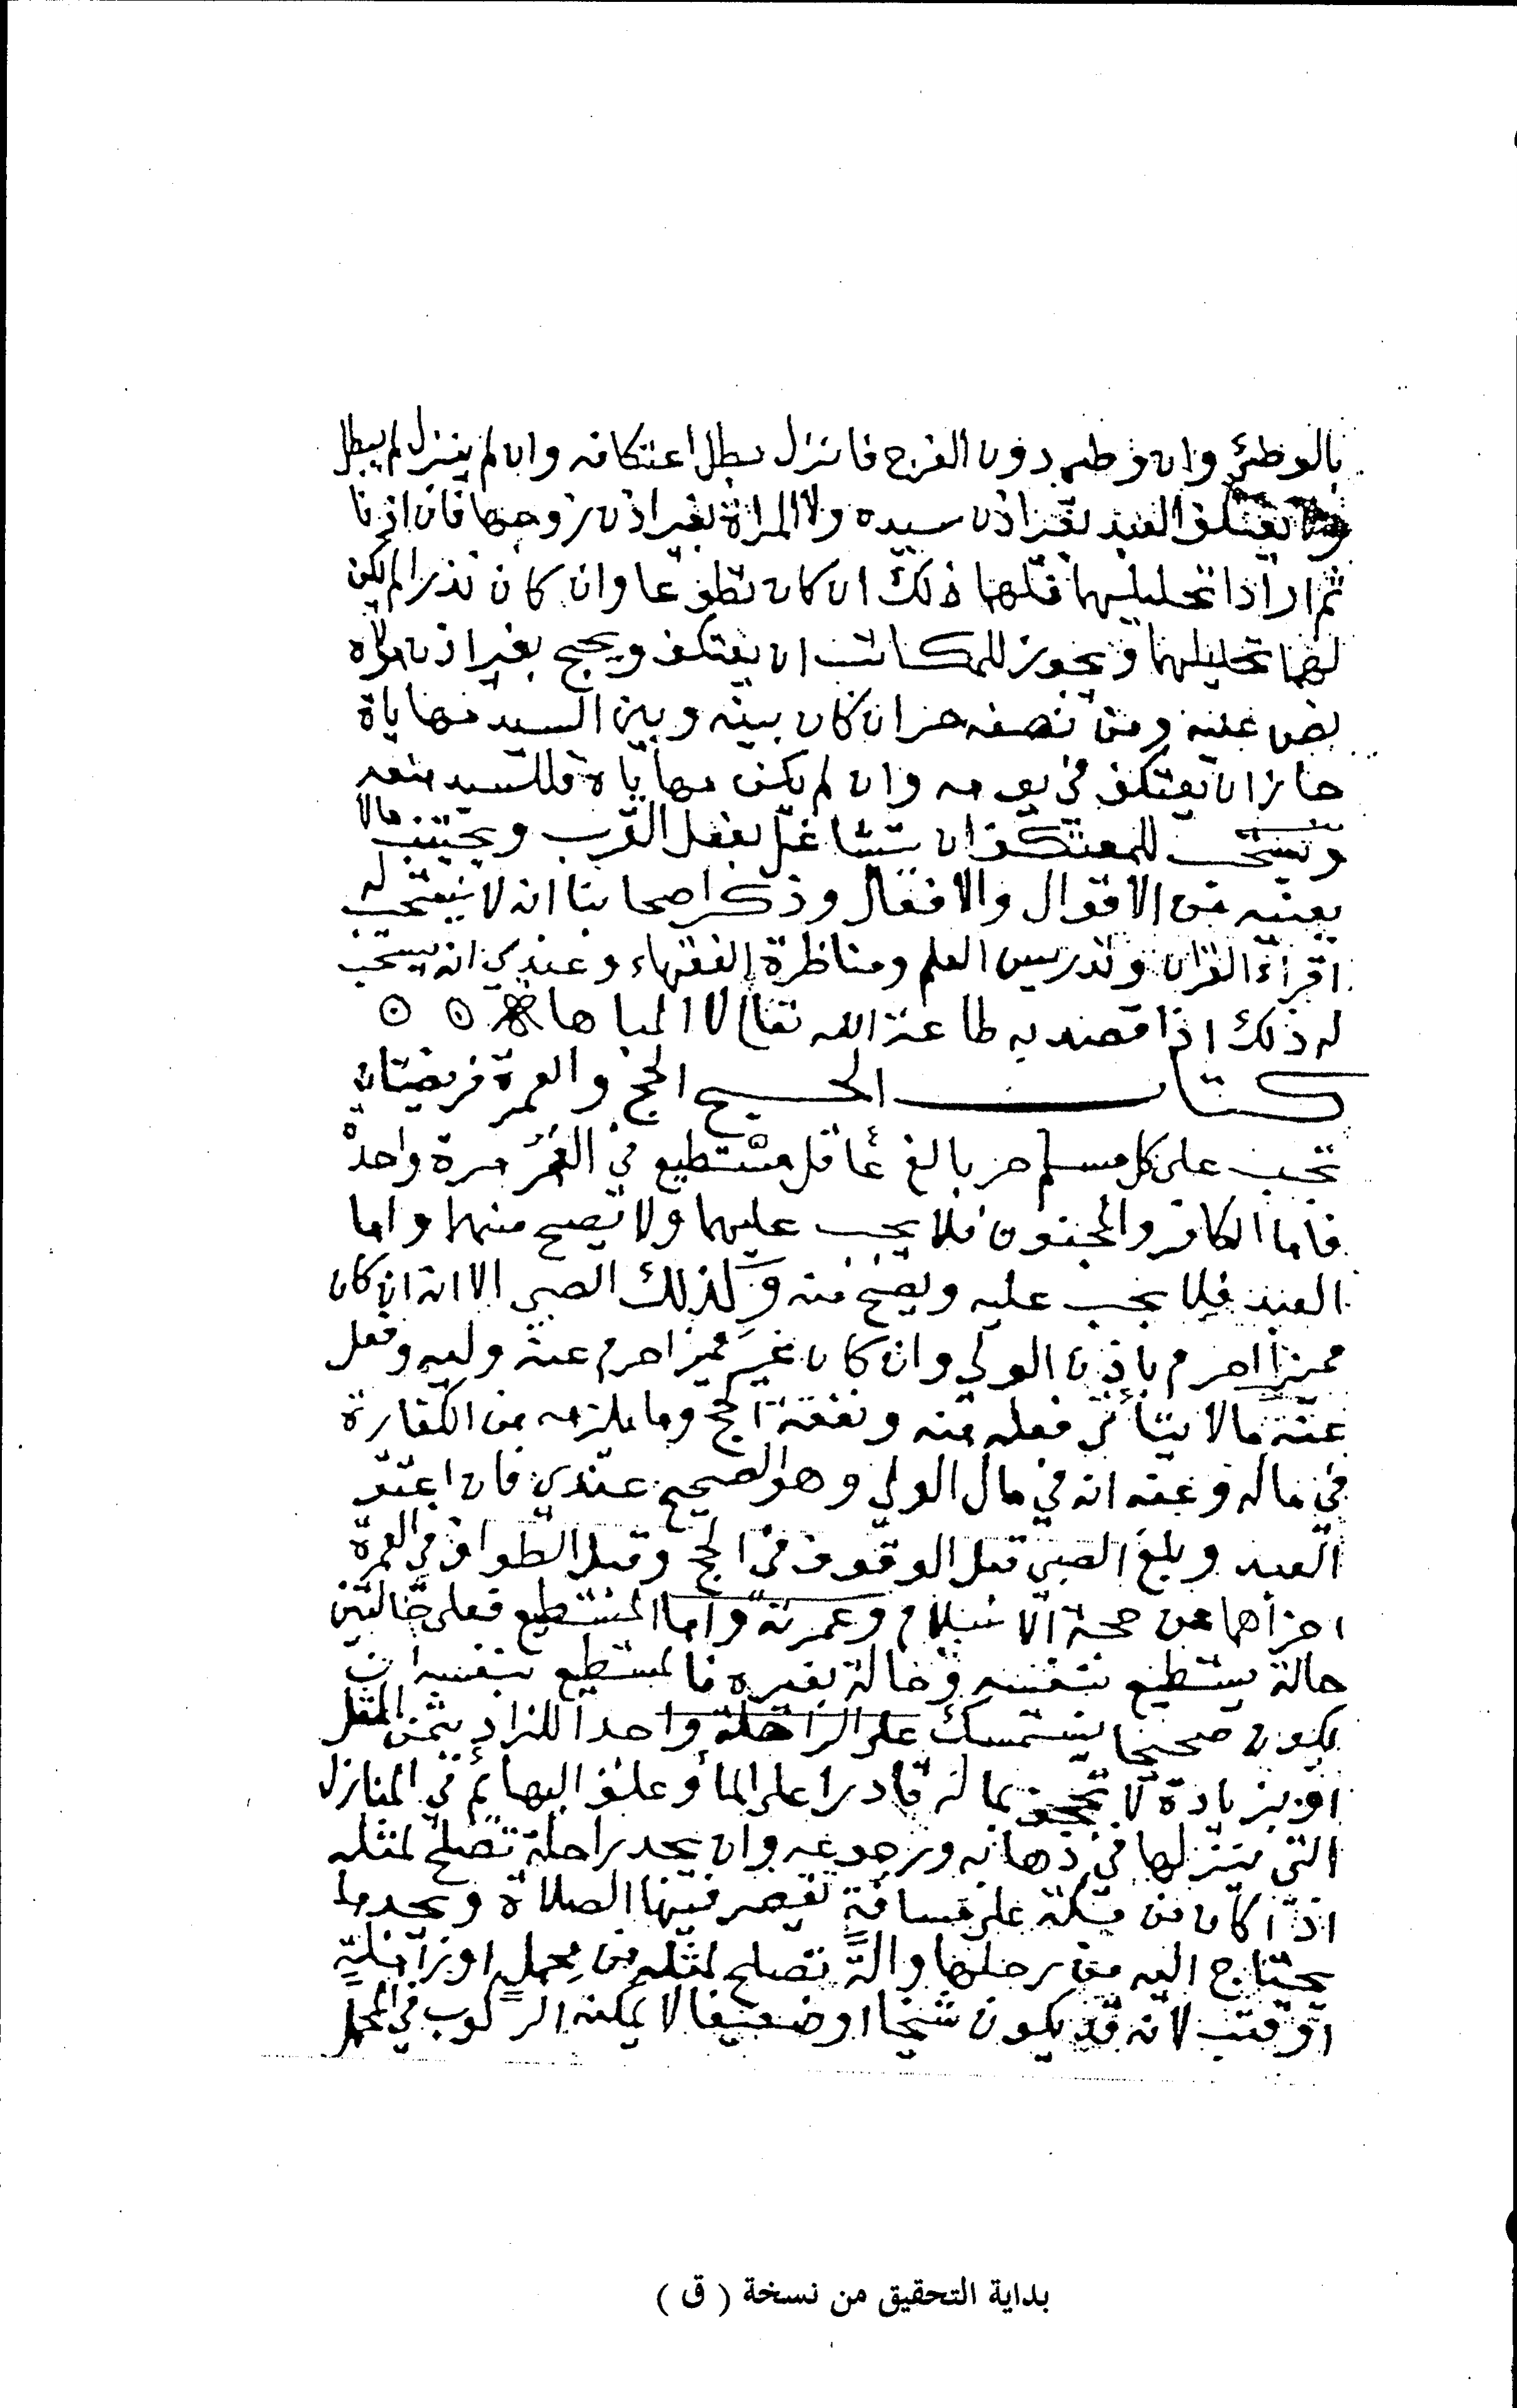 بالوطئ وان وطى دون الفرج فانزل بطل اعتكافه وان لم ينزل لم يبطل
ولا يعتكف العبد بغير اذن سيده ولا المراة بغير اذن زوجها فان اذنا
ثم ارادا تحليلهما فلهما ذلك ان كان تطوعا وان كان نذرا لم يكن
لهما تحليلهما ويجوز للمكاتب ان يعتكف ويحج بغير اذن مولاه
نص عليه ومن نصفه حر ان كان بينه وبين السيد مهاياة
جاز ان يعتكف في يومه وان لم يكن مهاياة فللسيد منعه
ويستحب للمعتكف ان يتشاغل بفعل القرب ويجتنب مالا
يعنيه من الاقوال والافعال وذكر اصحابنا انه لا يستحب له
اقراء القران وتدريس العلم ومناظرة الفقهاء وعندي انه يستحب
له ذلك اذا قصد به طاعة الله تعالى لا المباهاة
كتاب الحج الحج والعمرة فريضتان
تجب على كل مسلم حر بالغ عاقل مستطيع في العمر مرة واحدة
فاما الكافر والمجنون فلا يجب عليهما ولا تصح منهما واما
العبد فلا يجب عليه ويصح منه وكذلك الصبي الا انه ان كان
مميزا احرم باذن الولي وان كان غير مميز احرم عنه وليه وفعل
عنه مالا يتأتى فعله منه ونفقة الحج وما يلزمه من الكفارة
في ماله وعنه انه في مال الولي وهو الصحيح عندي فان اعتق
العبد وبلغ الصبي قبل الوقوف في الحج وقبل الطواف في العمرة
اجزأهما عن حجة الاسلام وعمرته واما المستطيع فعلى حالتين
حالة يستطيع بنفسه وحالة بغيره فالمستطيع بنفسه ان
يكون صحيحا يستمسك على الراحلة واجدا للزاد بثمن المثل
او بزيادة لا تجحف بماله قادرا على الماء وعلف البهائم في المنازل
التي ينزلها في ذهابه ورجوعه وان يجد راحلة تصلح لمثله
اذا كان من مكة على مسافةٍ تقصر فيها الصلاة ويجد ما
يحتاج اليه من رحلها والةً تصلح لمثله من محملٍ او زاملةٍ
او قتب لانه قد يكون شيخا او ضعيفا لا يمكنه الركوب في المحمل
بداية التحقيق من نسخة ( ق )